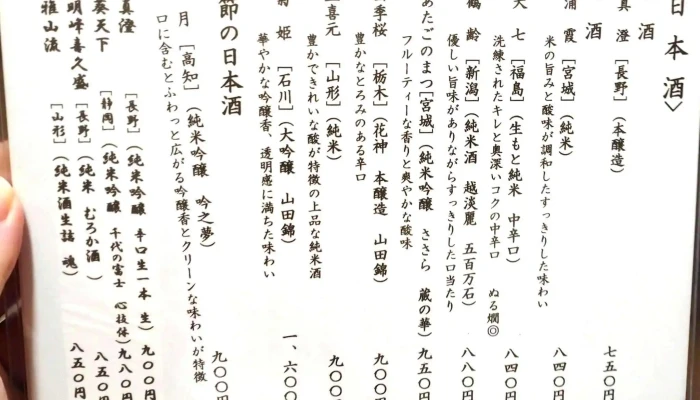 日本酒〉
酒
真澄［長野］（本醸造） 七五〇円
酒
浦霞［宮城］（純米） 八四〇円
米の旨みと酸味が調和したすっきりした味わい
大七［福島］（生もと純米 中辛口） 八四〇円
洗練されたキレと奥深いコクの中辛口 ぬる燗◎
鶴齢［新潟］（純米酒 越淡麗 五百万石） 八八〇円
優しい旨味がありながらすっきりした口当たり
あたごのまつ［宮城］（純米吟醸 ささら 蔵の華） 九五〇円
フルーティーな香りと爽やかな酸味
四季桜［栃木］（花神 本醸造 山田錦） 九〇〇円
豊かなとろみのある辛口
上喜元［山形］（純米） 九〇〇円
豊かできれいな酸が特徴の上品な純米酒
菊姫［石川］（大吟醸 山田錦） 一、六〇〇
華やかな吟醸香、透明感に満ちた味わい
節の日本酒
月［高知］（純米吟醸 吟之夢） 九〇〇円
口に含むとふわっと広がる吟醸香とクリーンな味わいが特徴
真澄［長野］（純米吟醸 辛口生一本 生） 九〇〇円
葵天下［静岡］（純米吟醸 千代の富士 心技体） 九八〇円
明峰喜久盛［長野］（純米 むろか酒） 八五〇円
雅山流［山形］（純米酒生詰 魂） 八五〇円